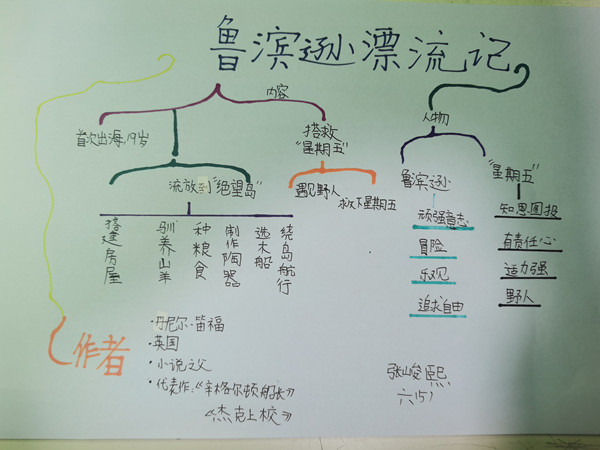 鲁滨逊漂流记
内容
首次出海,19岁
搭救
"星期五"
流放到"绝望岛"
遇见野人
救下星期五
搭建房屋
驯养山羊
种粮食
制作陶器
造木船
绕岛航行
人物
鲁滨逊
顽强意志
冒险
乐观
追求自由
"星期五"
知恩图报
有责任心
适力强
野人
作者
·丹尼尔·笛福
·英国
·小说之父
·代表作:《辛格尔顿船长》
《杰克上校》
张峻熙
六(5)